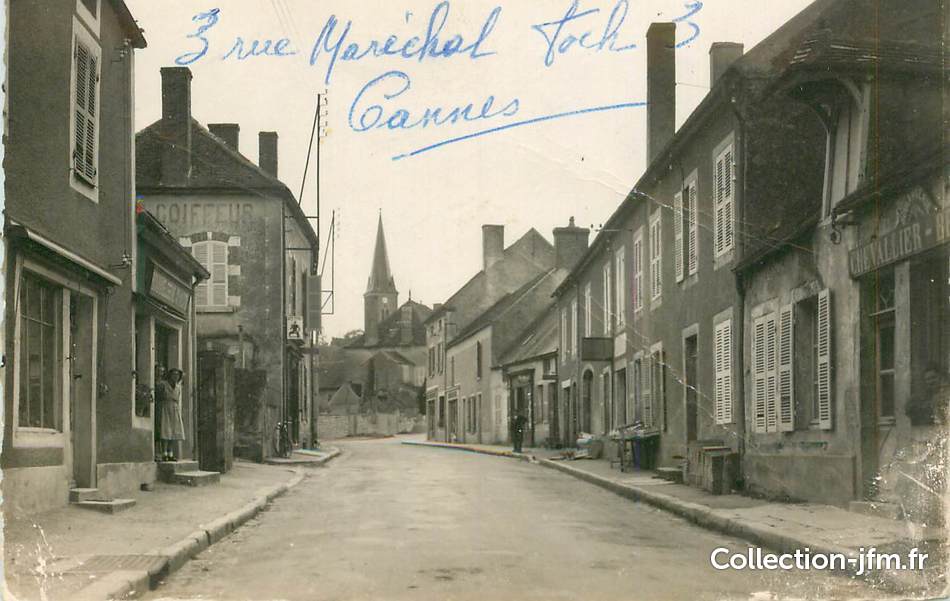 3 rue Maréchal Foch 3
Cannes
COIFFEUR
CHEVALLIER-
Collection-jfm.fr